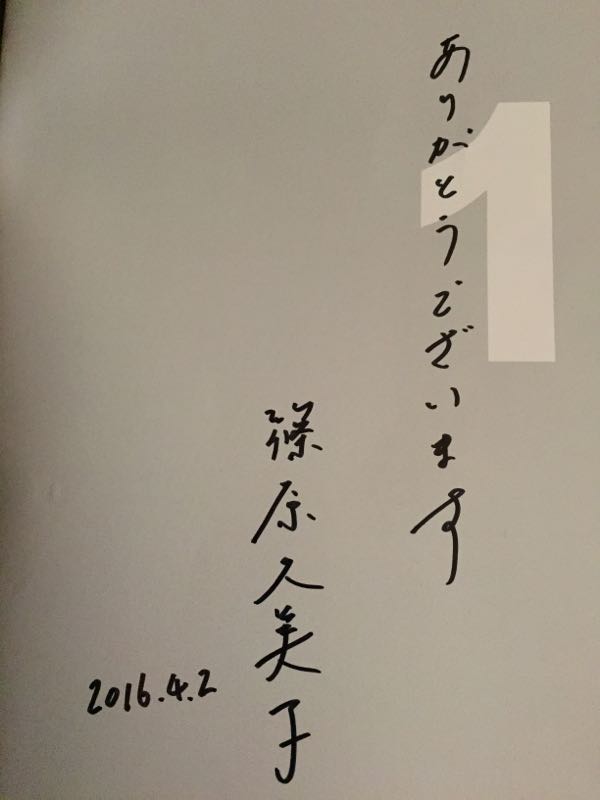 ありがとうございます
1
篠原久美子
2016.4.2